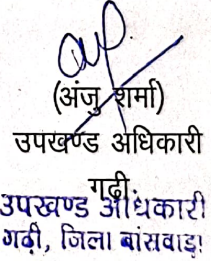 (अंजु शर्मा)
उपखण्ड अधिकारी
गढ़ी.
उपखण्ड अधिकारी
गढ़ी, जिला बांसवाड़ा